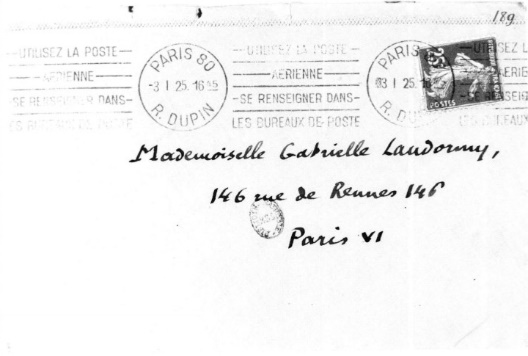 189
UTILISEZ LA POSTE
AERIENNE
SE RENSEIGNER DANS
LES BUREAUX DE POSTE
PARIS 80
-3 I 25. 16
R. DUPIN
UTILISEZ LA POSTE
AERIENNE
SE RENSEIGNER DANS
LES BUREAUX DE POSTE
PARIS
3 I 25.
R. DUPIN
25
POSTES
Mademoiselle Gabrielle Landormy,
146 rue de Rennes 146
Paris VI